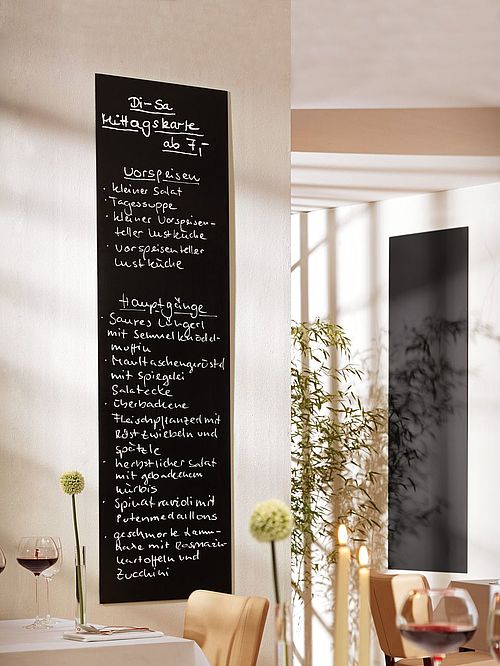 Di-Sa
Mittagskarte
ab 7,-
Vorspeisen
· kleiner Salat
· Tagessuppe
· kleiner Vorspeisen-
teller Lustküche
· Vorspeisenteller
Lustküche
Hauptgänge
· Saures Lüngerl
mit Semmelknödel-
muffin
· Maultaschengeröstel
mit Spiegelei
Salatecke
· überbackene
Fleischpflanzerl mit
Röstzwiebeln und
Spätzle
· herbstlicher Salat
mit gebackenem
Kürbis
· Spinatravioli mit
Putenmedaillons
· geschmorte Lamm-
haxe mit Rosmarin-
kartoffeln und
Zucchini